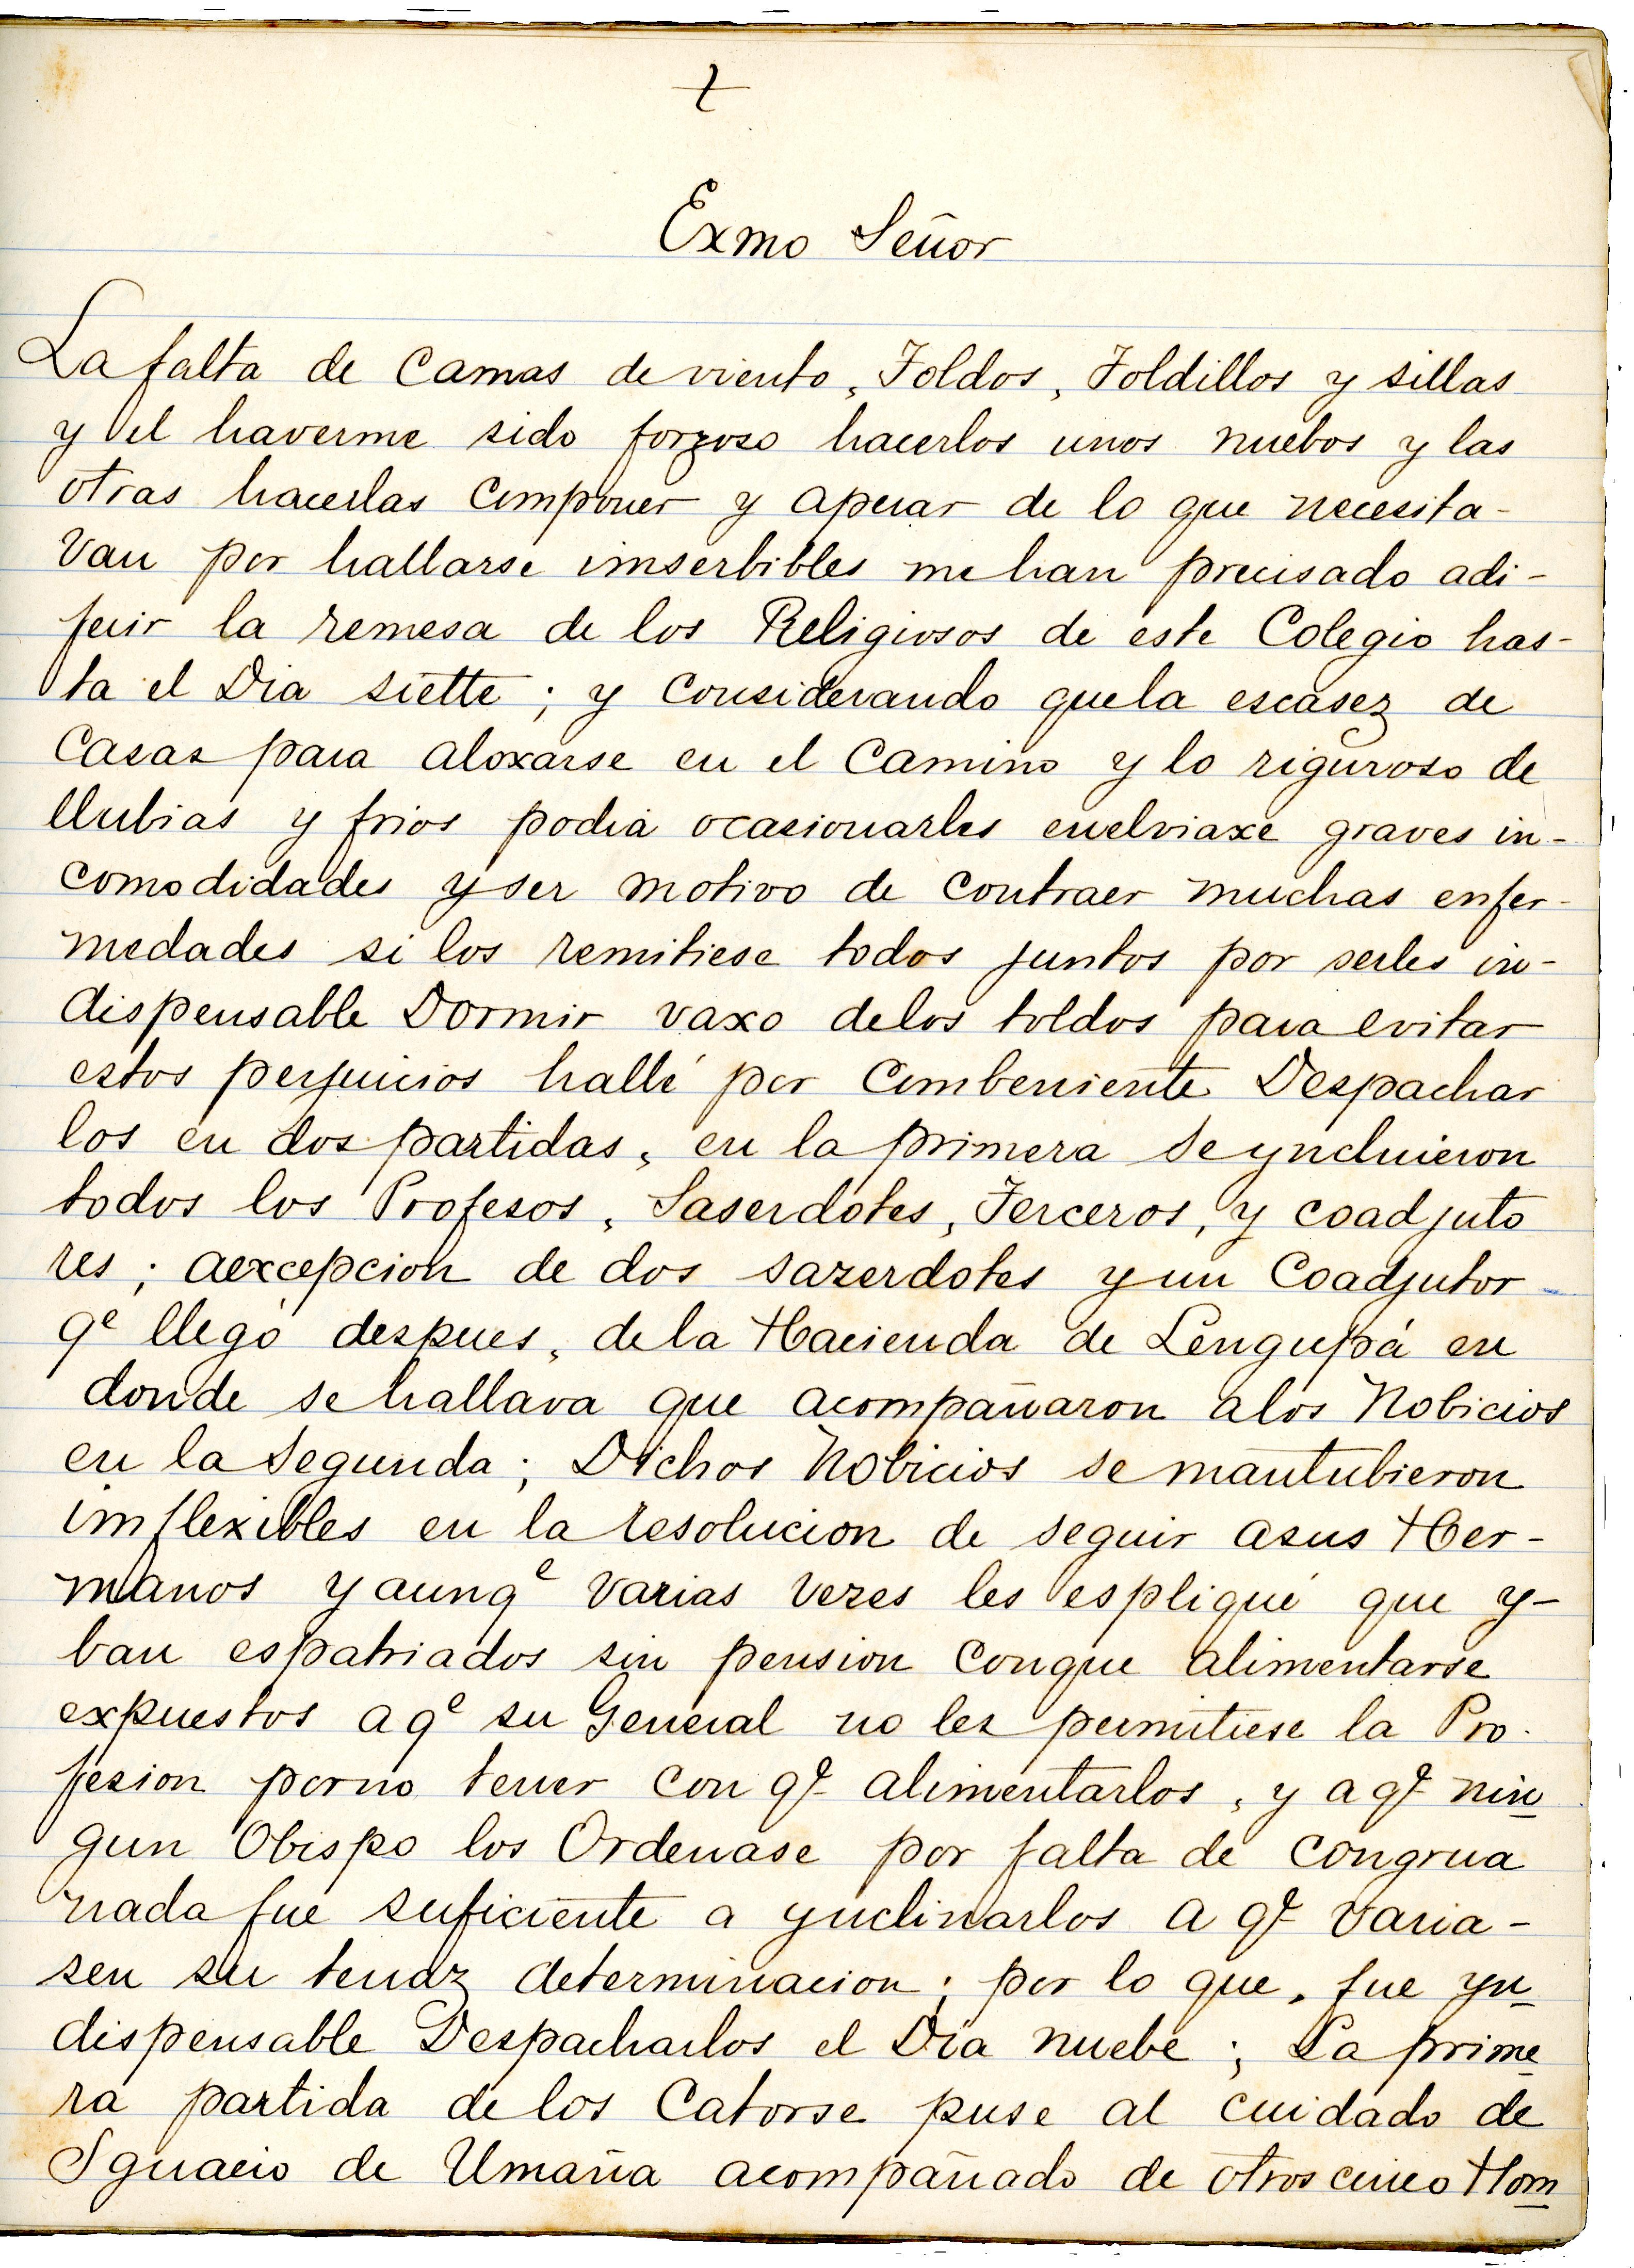 +
Exmo Señor
La falta de Camas de viento, Toldos, Toldillos y sillas
y el haverme sido forzoso hacerlos unos nuebos y las
otras hacerlas Componer y aperar de lo que necesita-
van por hallarse imserbibles me han precisado adi-
ferir la remesa de los Religiosos de este Colegio has-
ta el Dia siette; y Considerando quela escasez de
Casas para aloxarse en el Camino y lo riguroso de
llubias y frios podia ocasionarles enelviaxe graves in-
comodidades y ser motivo de contraer muchas enfer-
medades si los remitiese todos juntos por serles in-
dispensable Dormir vaxo delos toldos para evitar
estos perjuicios hallé por Combeniente Despachar
los en dos partidas, en la primera se yncluieron
todos los Profesos, Saserdotes, Terceros, y coadjuto
res; aexcepcion de dos sazerdotes y un Coadjutor
qe llegó despues, de la Hacienda de Lengupá en
donde se hallava que acompañaron alos Nobicios
en la segunda; Dichos Nobicios se mantubieron
imflexibles en la resolucion de seguir asus Her-
manos y aunqe varias vezes les espliqué que y-
ban espatriados sin pension conque alimentarse
expuestos a qe su General no les permitiese la Pro-
fesion porno tener con qe alimentarlos, y a qe nin
gun Obispo los Ordenase por falta de congrua
nada fue suficiente a ynclinarlos a qe varia-
sen su tenaz determinacion; por lo que, fue yn
dispensable Despacharlos el Dia nuebe; La prime
ra partida de los Catorse puse al cuidado de
Ignacio de Umaña acompañado de otros cinco Hom